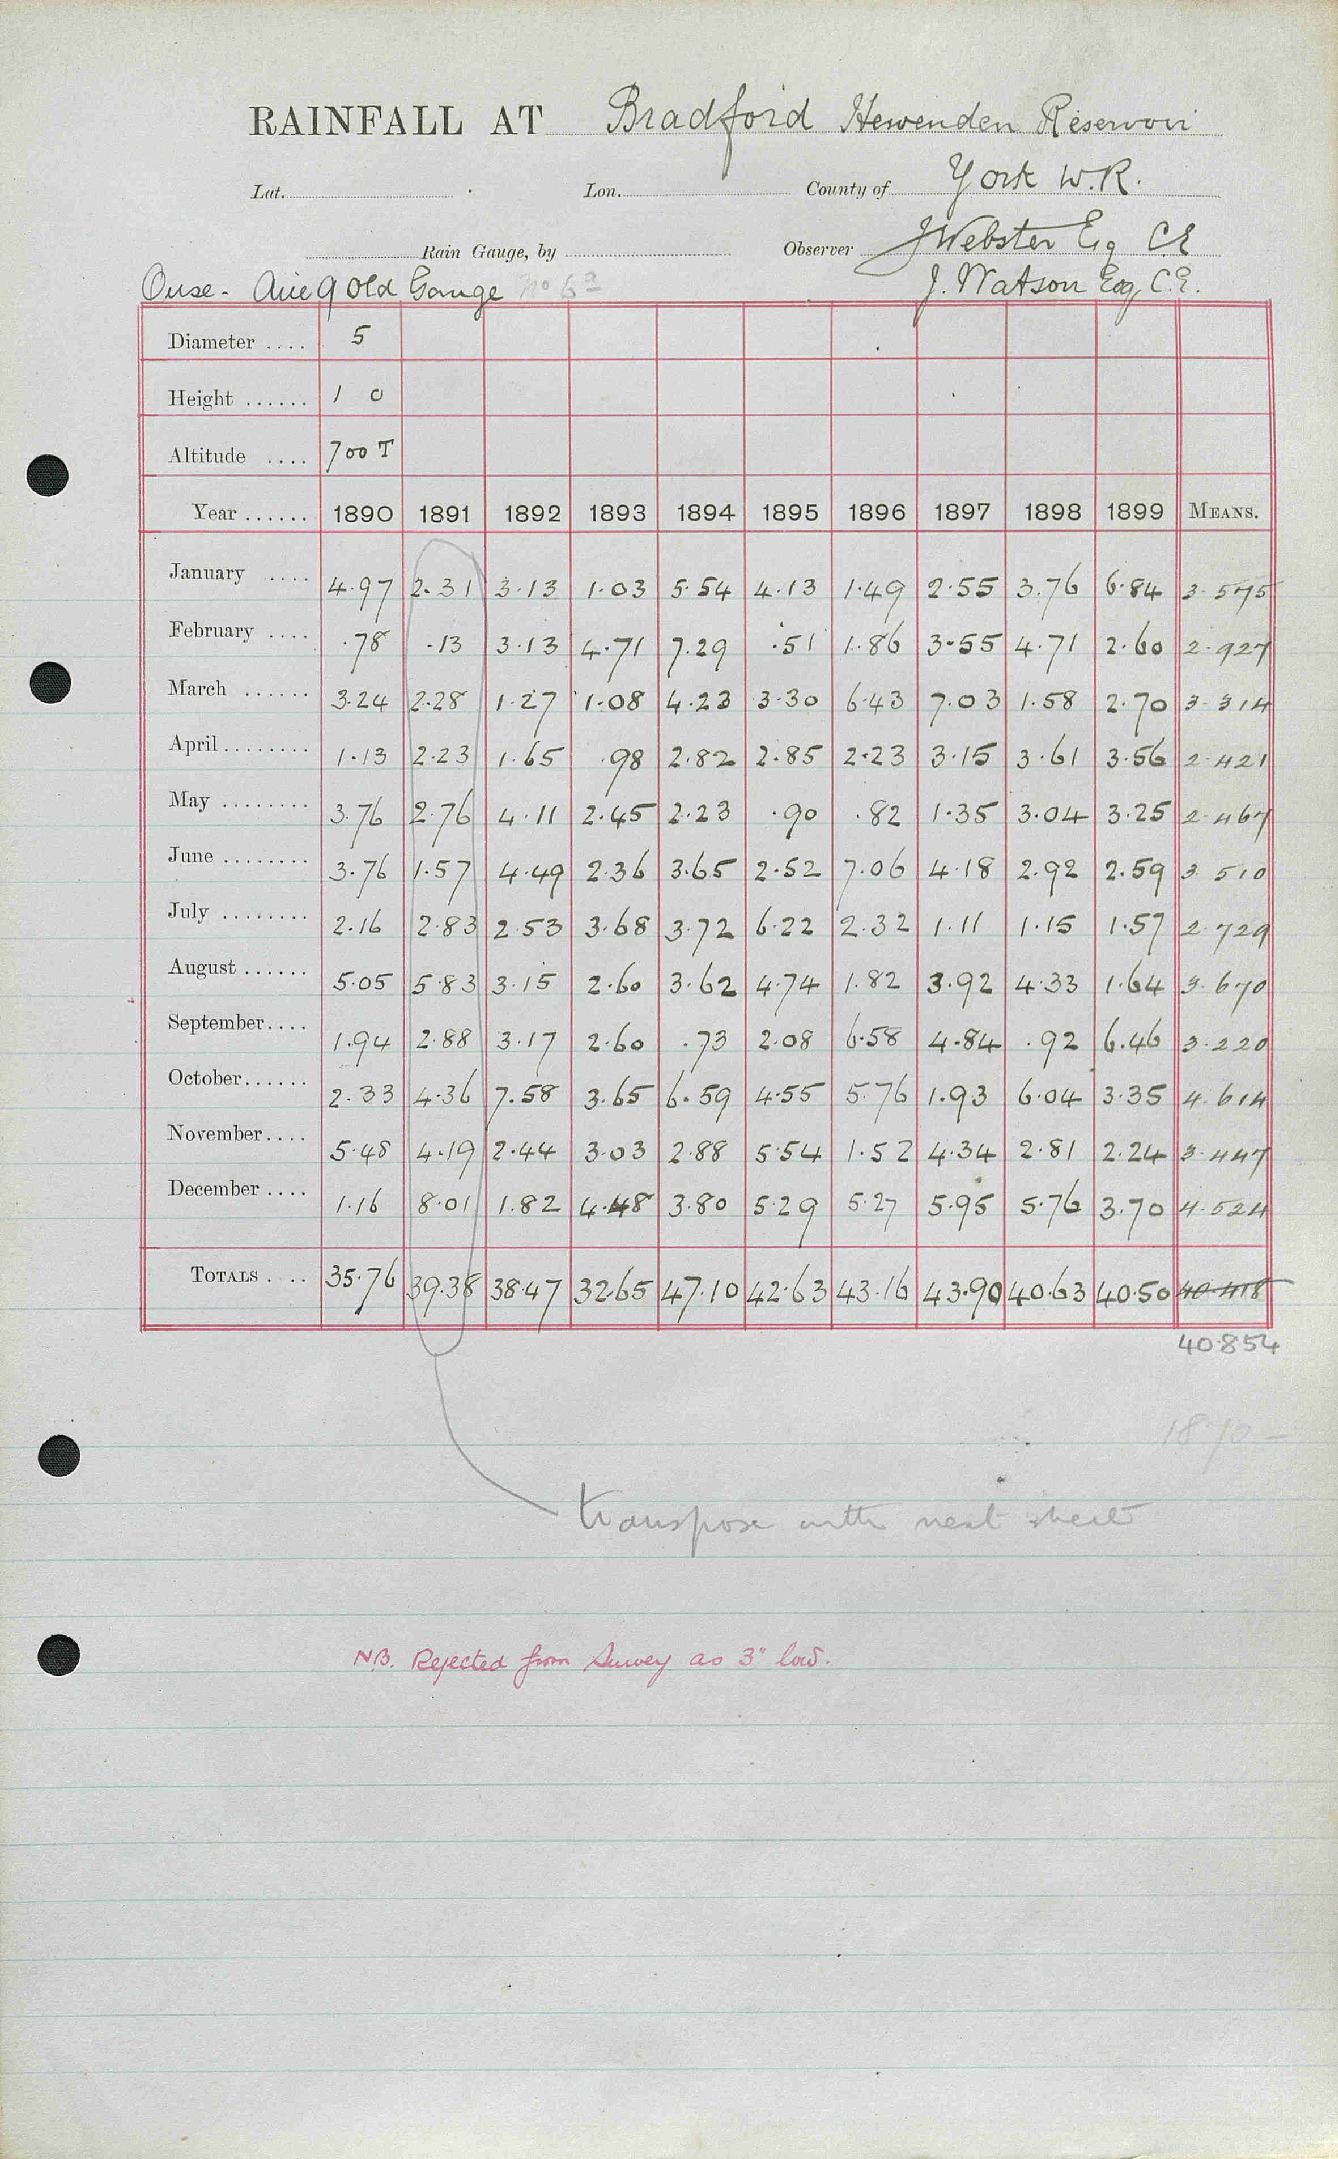 RAINFALL AT Bradford Hewenden Reservoir
Lat. Lon. County of York W.R.
Rain Gauge, by Observer J Webster Esq C.E
Ouse - Aire 9 Old Gauge No 6a J. Watson Esq C.E.
Diameter .... 5
Height ...... 1 0
Altitude .... 700 T
Year ...... 1890 1891 1892 1893 1894 1895 1896 1897 1898 1899 MEANS.
January .... 4.97 2.31 3.13 1.03 5.54 4.13 1.49 2.55 3.76 6.84 3.575
February .... .78 .13 3.13 4.71 7.29 .51 1.86 3.55 4.71 2.60 2.927
March ...... 3.24 2.28 1.27 1.08 4.23 3.30 6.43 7.03 1.58 2.70 3.314
April ........ 1.13 2.23 1.65 .98 2.82 2.85 2.23 3.15 3.61 3.56 2.421
May ........ 3.76 2.76 4.11 2.45 2.23 .90 .82 1.35 3.04 3.25 2.467
June ........ 3.76 1.57 4.49 2.36 3.65 2.52 7.06 4.18 2.92 2.59 3.510
July ........ 2.16 2.83 2.53 3.68 3.72 6.22 2.32 1.11 1.15 1.57 2.729
August ...... 5.05 5.83 3.15 2.60 3.62 4.74 1.82 3.92 4.33 1.64 3.670
September.... 1.94 2.88 3.17 2.60 .73 2.08 6.58 4.84 .92 6.46 3.220
October...... 2.33 4.36 7.58 3.65 6.59 4.55 5.76 1.93 6.04 3.35 4.614
November.... 5.48 4.19 2.44 3.03 2.88 5.54 1.52 4.34 2.81 2.24 3.447
December .... 1.16 8.01 1.82 4.48 3.80 5.29 5.27 5.95 5.76 3.70 4.524
TOTALS .... 35.76 39.38 38.47 32.65 47.10 42.63 43.16 43.90 40.63 40.50 40.418
40.854
1870 -
transpose with next sheet
NB. Rejected from Survey as 3" low.